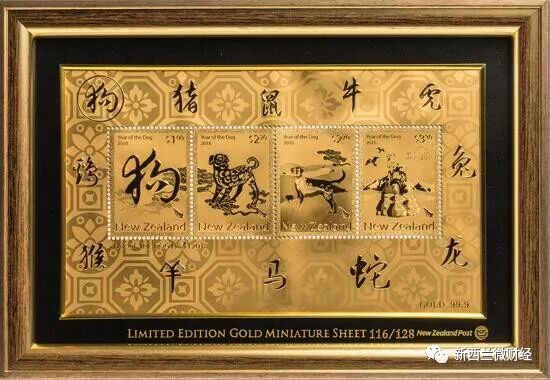 狗 猪 鼠 牛 虎
Year of the Dog
2018
Year of the Dog
2018
Year of the Dog
2018
Year of the Dog
2018
鸡
狗
兔
New Zealand
New Zealand
New Zealand
New Zealand
猴 羊 马 蛇 龙
GOLD 99.9
LIMITED EDITION GOLD MINIATURE SHEET 116/128 New Zealand Post
新西兰微财经